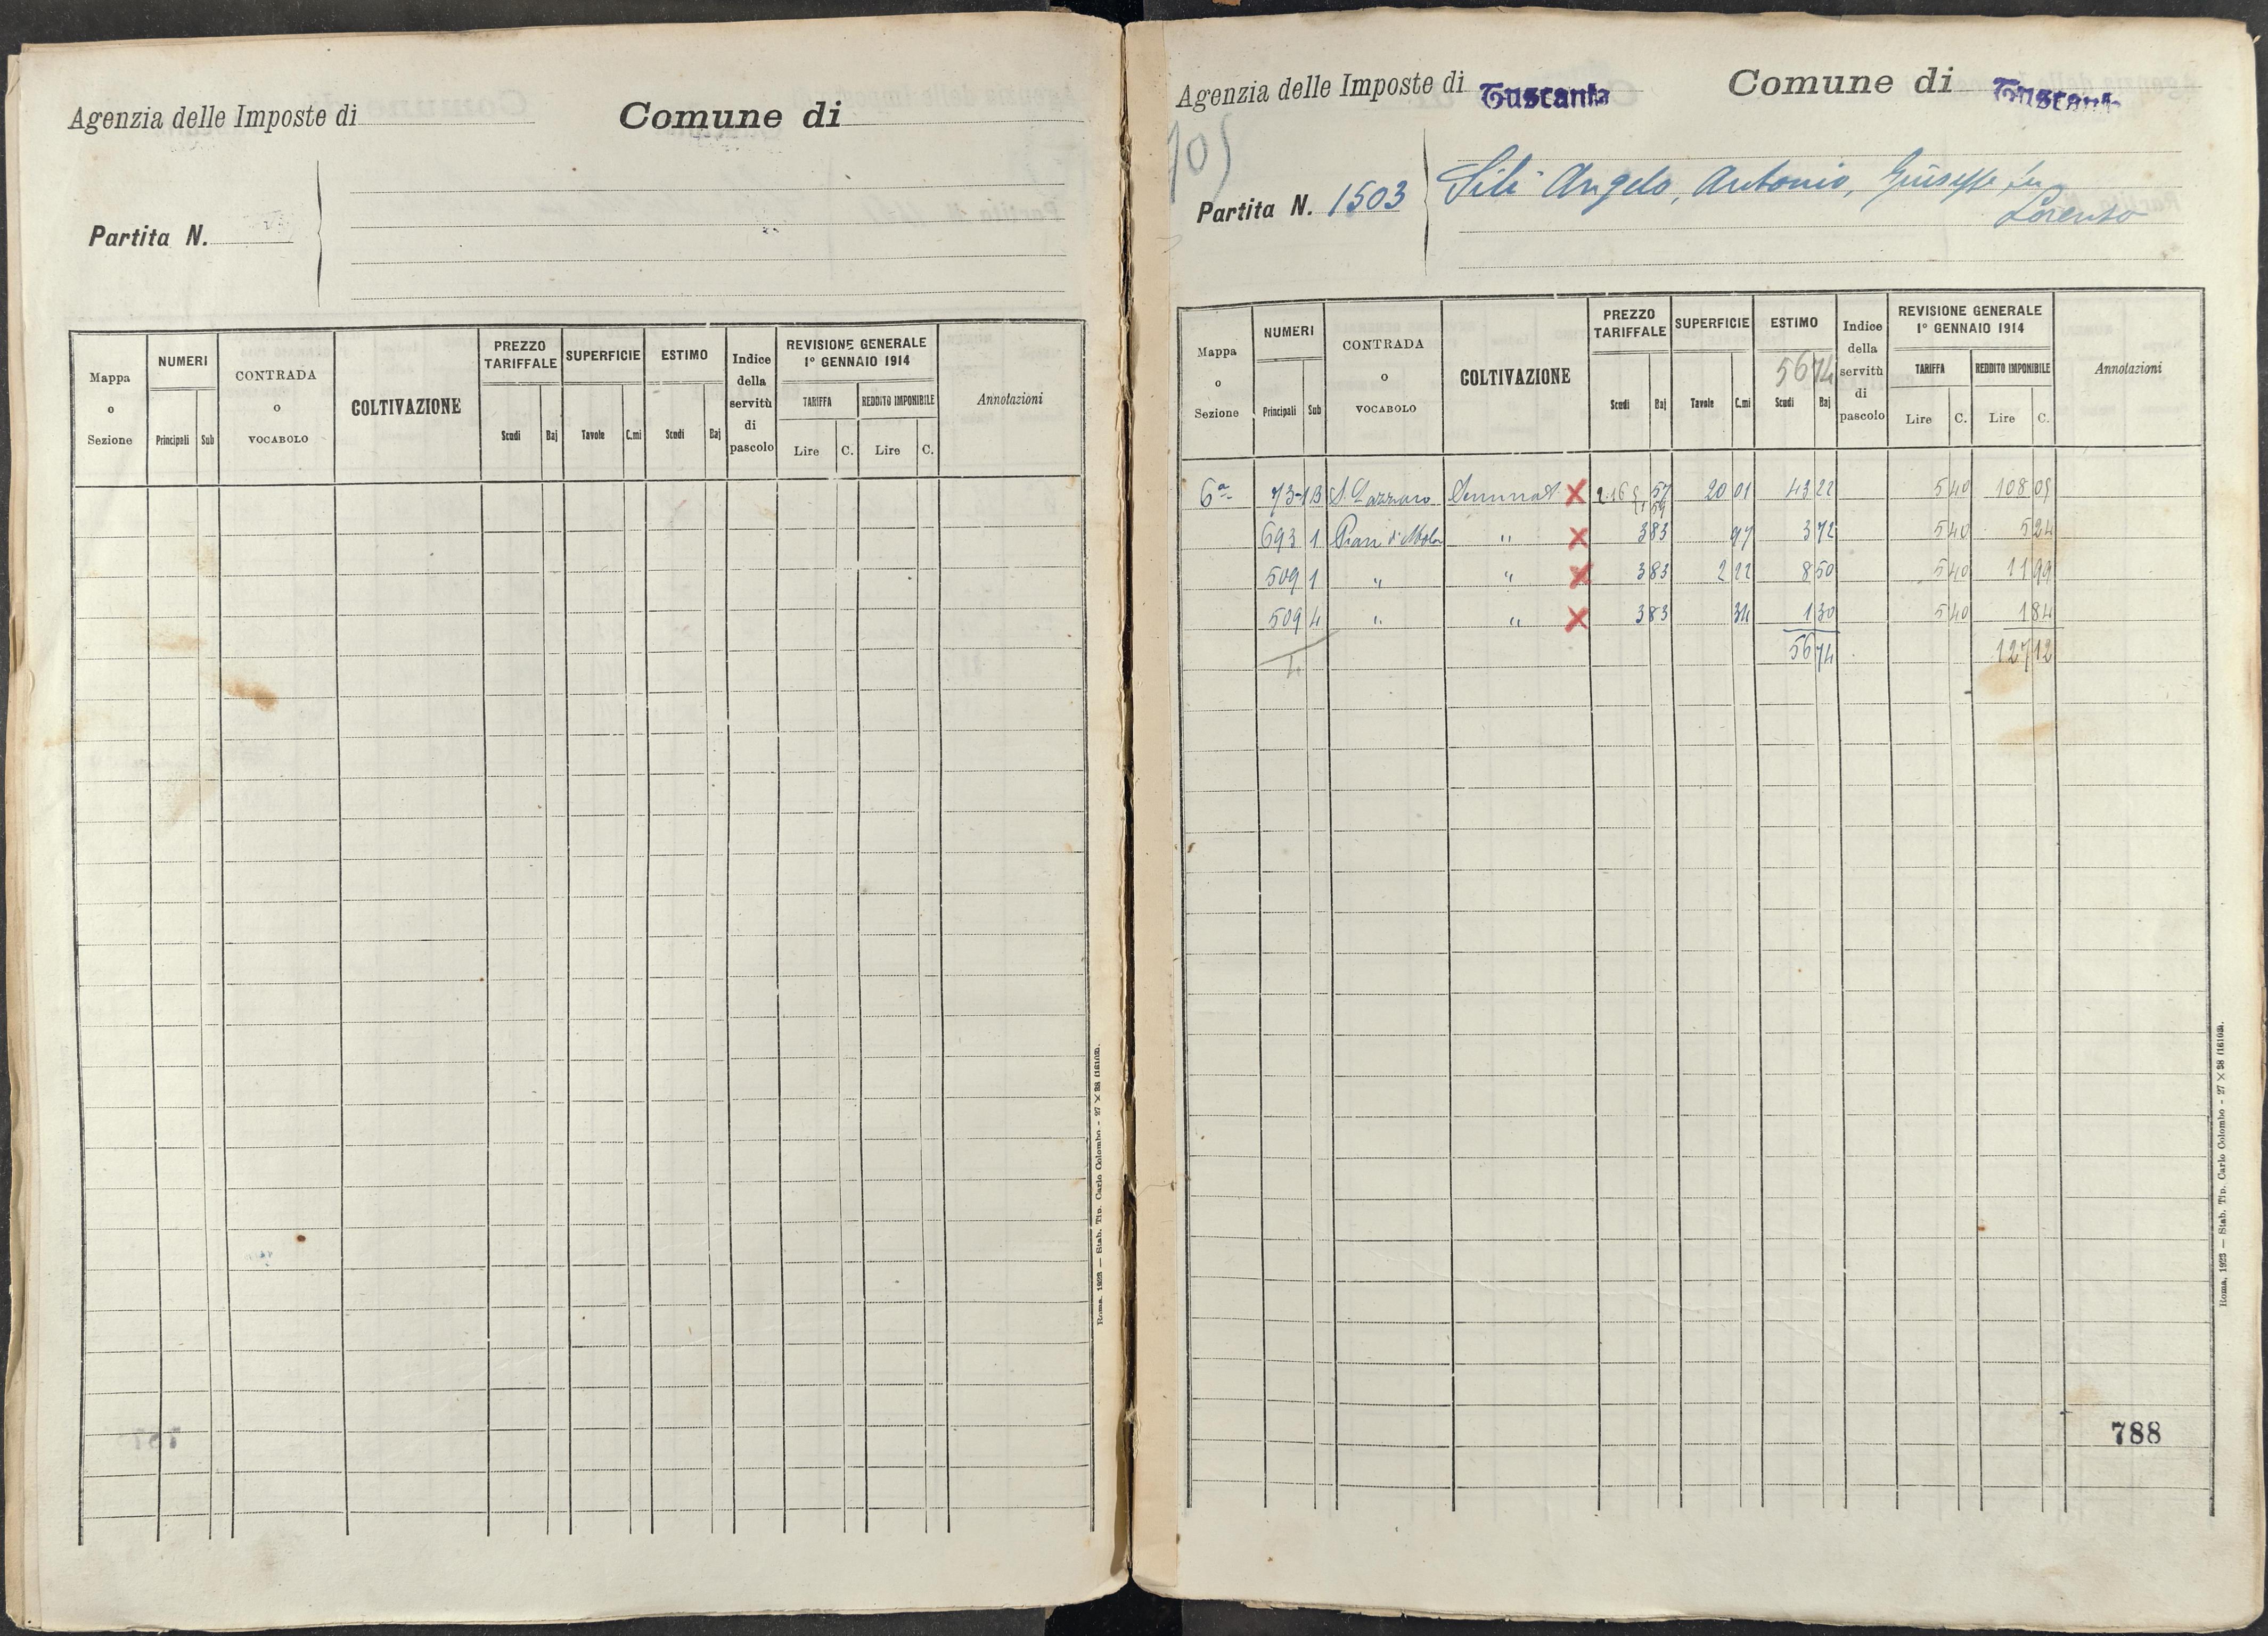 Agenzia delle Imposte di
Comune di
Partita N.
Mappa o Sezione
NUMERI
Principali
Sub
CONTRADA o VOCABOLO
COLTIVAZIONE
PREZZO TARIFFALE
Scudi
Baj
SUPERFICIE
Tavole
C.mi
ESTIMO
Scudi
Baj
Indice della servitù di pascolo
REVISIONE GENERALE
1º GENNAIO 1914
TARIFFA
REDDITO IMPONIBILE
Lire
C.
Lire
C.
Annotazioni
Roma, 1923 — Stab. Tip. Carlo Colombo - 27 × 38 (16103).
Agenzia delle Imposte di Tuscania
Comune di Tuscania
105
Partita N. 1503
Sili Angelo, Antonio, Giuseppe fu
Lorenzo
Mappa o Sezione
NUMERI
Principali
Sub
CONTRADA o VOCABOLO
COLTIVAZIONE
PREZZO TARIFFALE
Scudi
Baj
SUPERFICIE
Tavole
C.mi
ESTIMO
5674
Scudi
Baj
Indice della servitù di pascolo
REVISIONE GENERALE
1º GENNAIO 1914
TARIFFA
REDDITO IMPONIBILE
Lire
C.
Lire
C.
Annotazioni
6ª 73-1 B S. Lazzaro Seminat. X 2.16 57 20 01 43 22 5 40 108 05
1 59
693 1 Pian di Mola " X 3 83 97 3 72 5 40 5 24
509 1 " " X 3 83 2 22 8 50 5 40 11 99
509 4 " " X 3 83 34 1 30 5 40 1 84
4 56 74 127 12
788
Roma, 1923 — Stab. Tip. Carlo Colombo - 27 × 38 (16103).